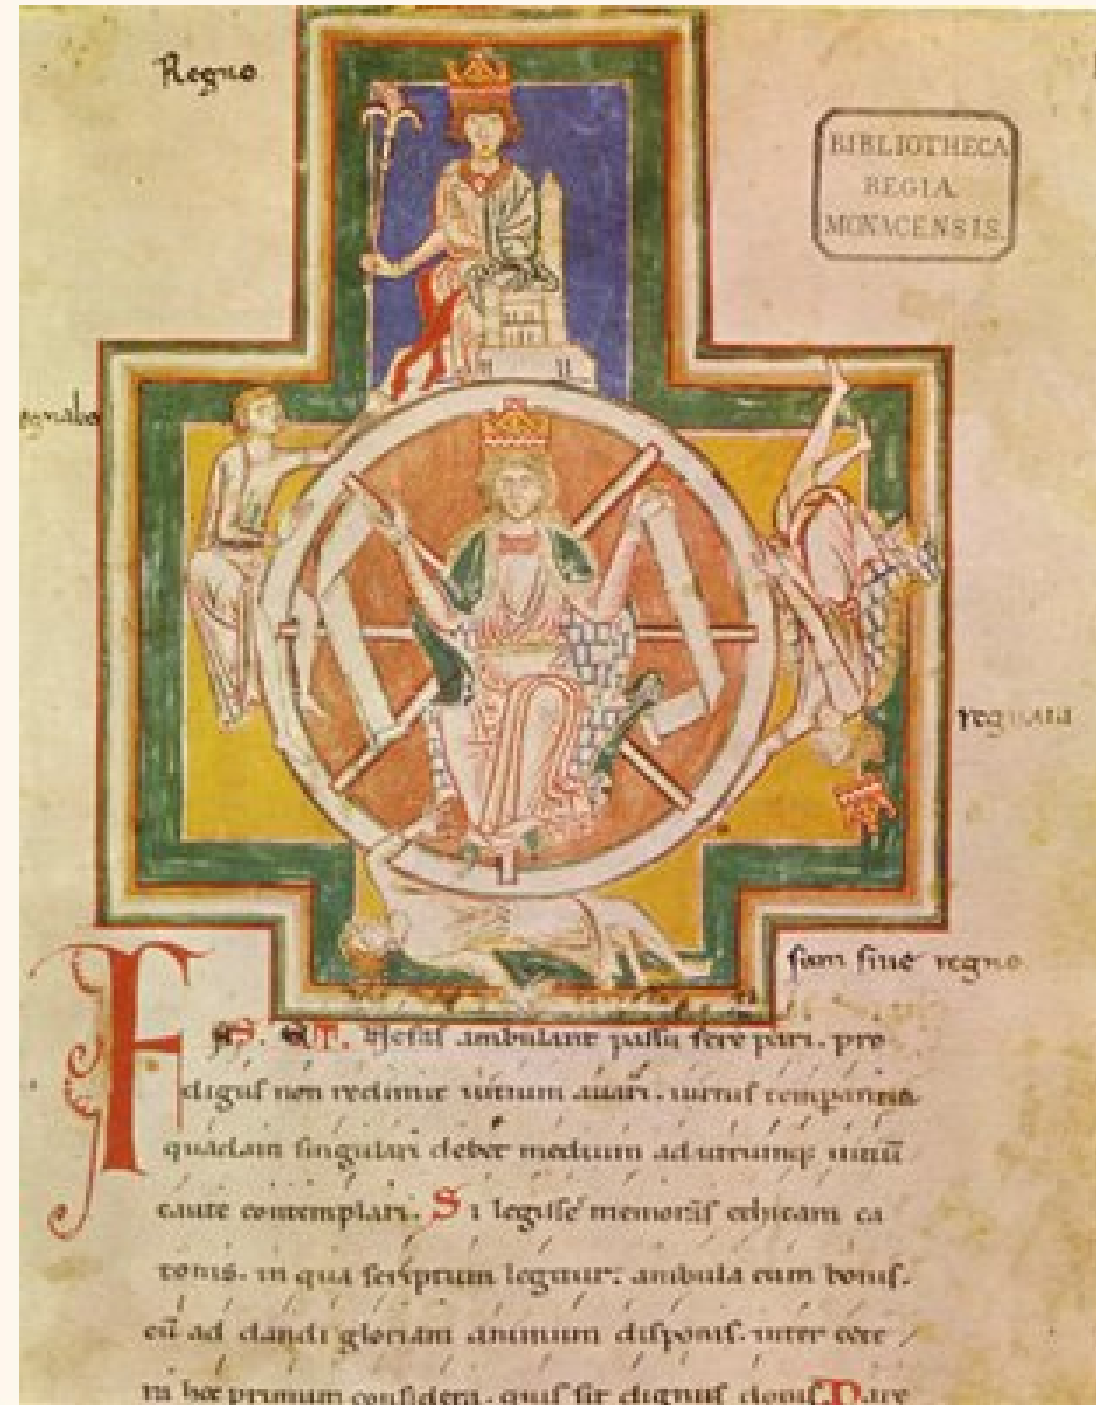 Regno
BIBLIOTHECA
REGIA
MONACENSIS.
egnabo
regnaui
sum sine regno
FAS. ET. Nefas ambulant passu fere pari. pro
digus non redimit uitium auari. uirtus temperantia
quadam singulari debet medium ad utrumque uitiū
caute contemplari. Si legisse memoris ethicam ca
tonis. in qua scriptum legitur: ambula cum bonis.
cū ad dandi gloriam animum disponis. inter cete
ra hoc primum considera. quis sit dignus donis Dare